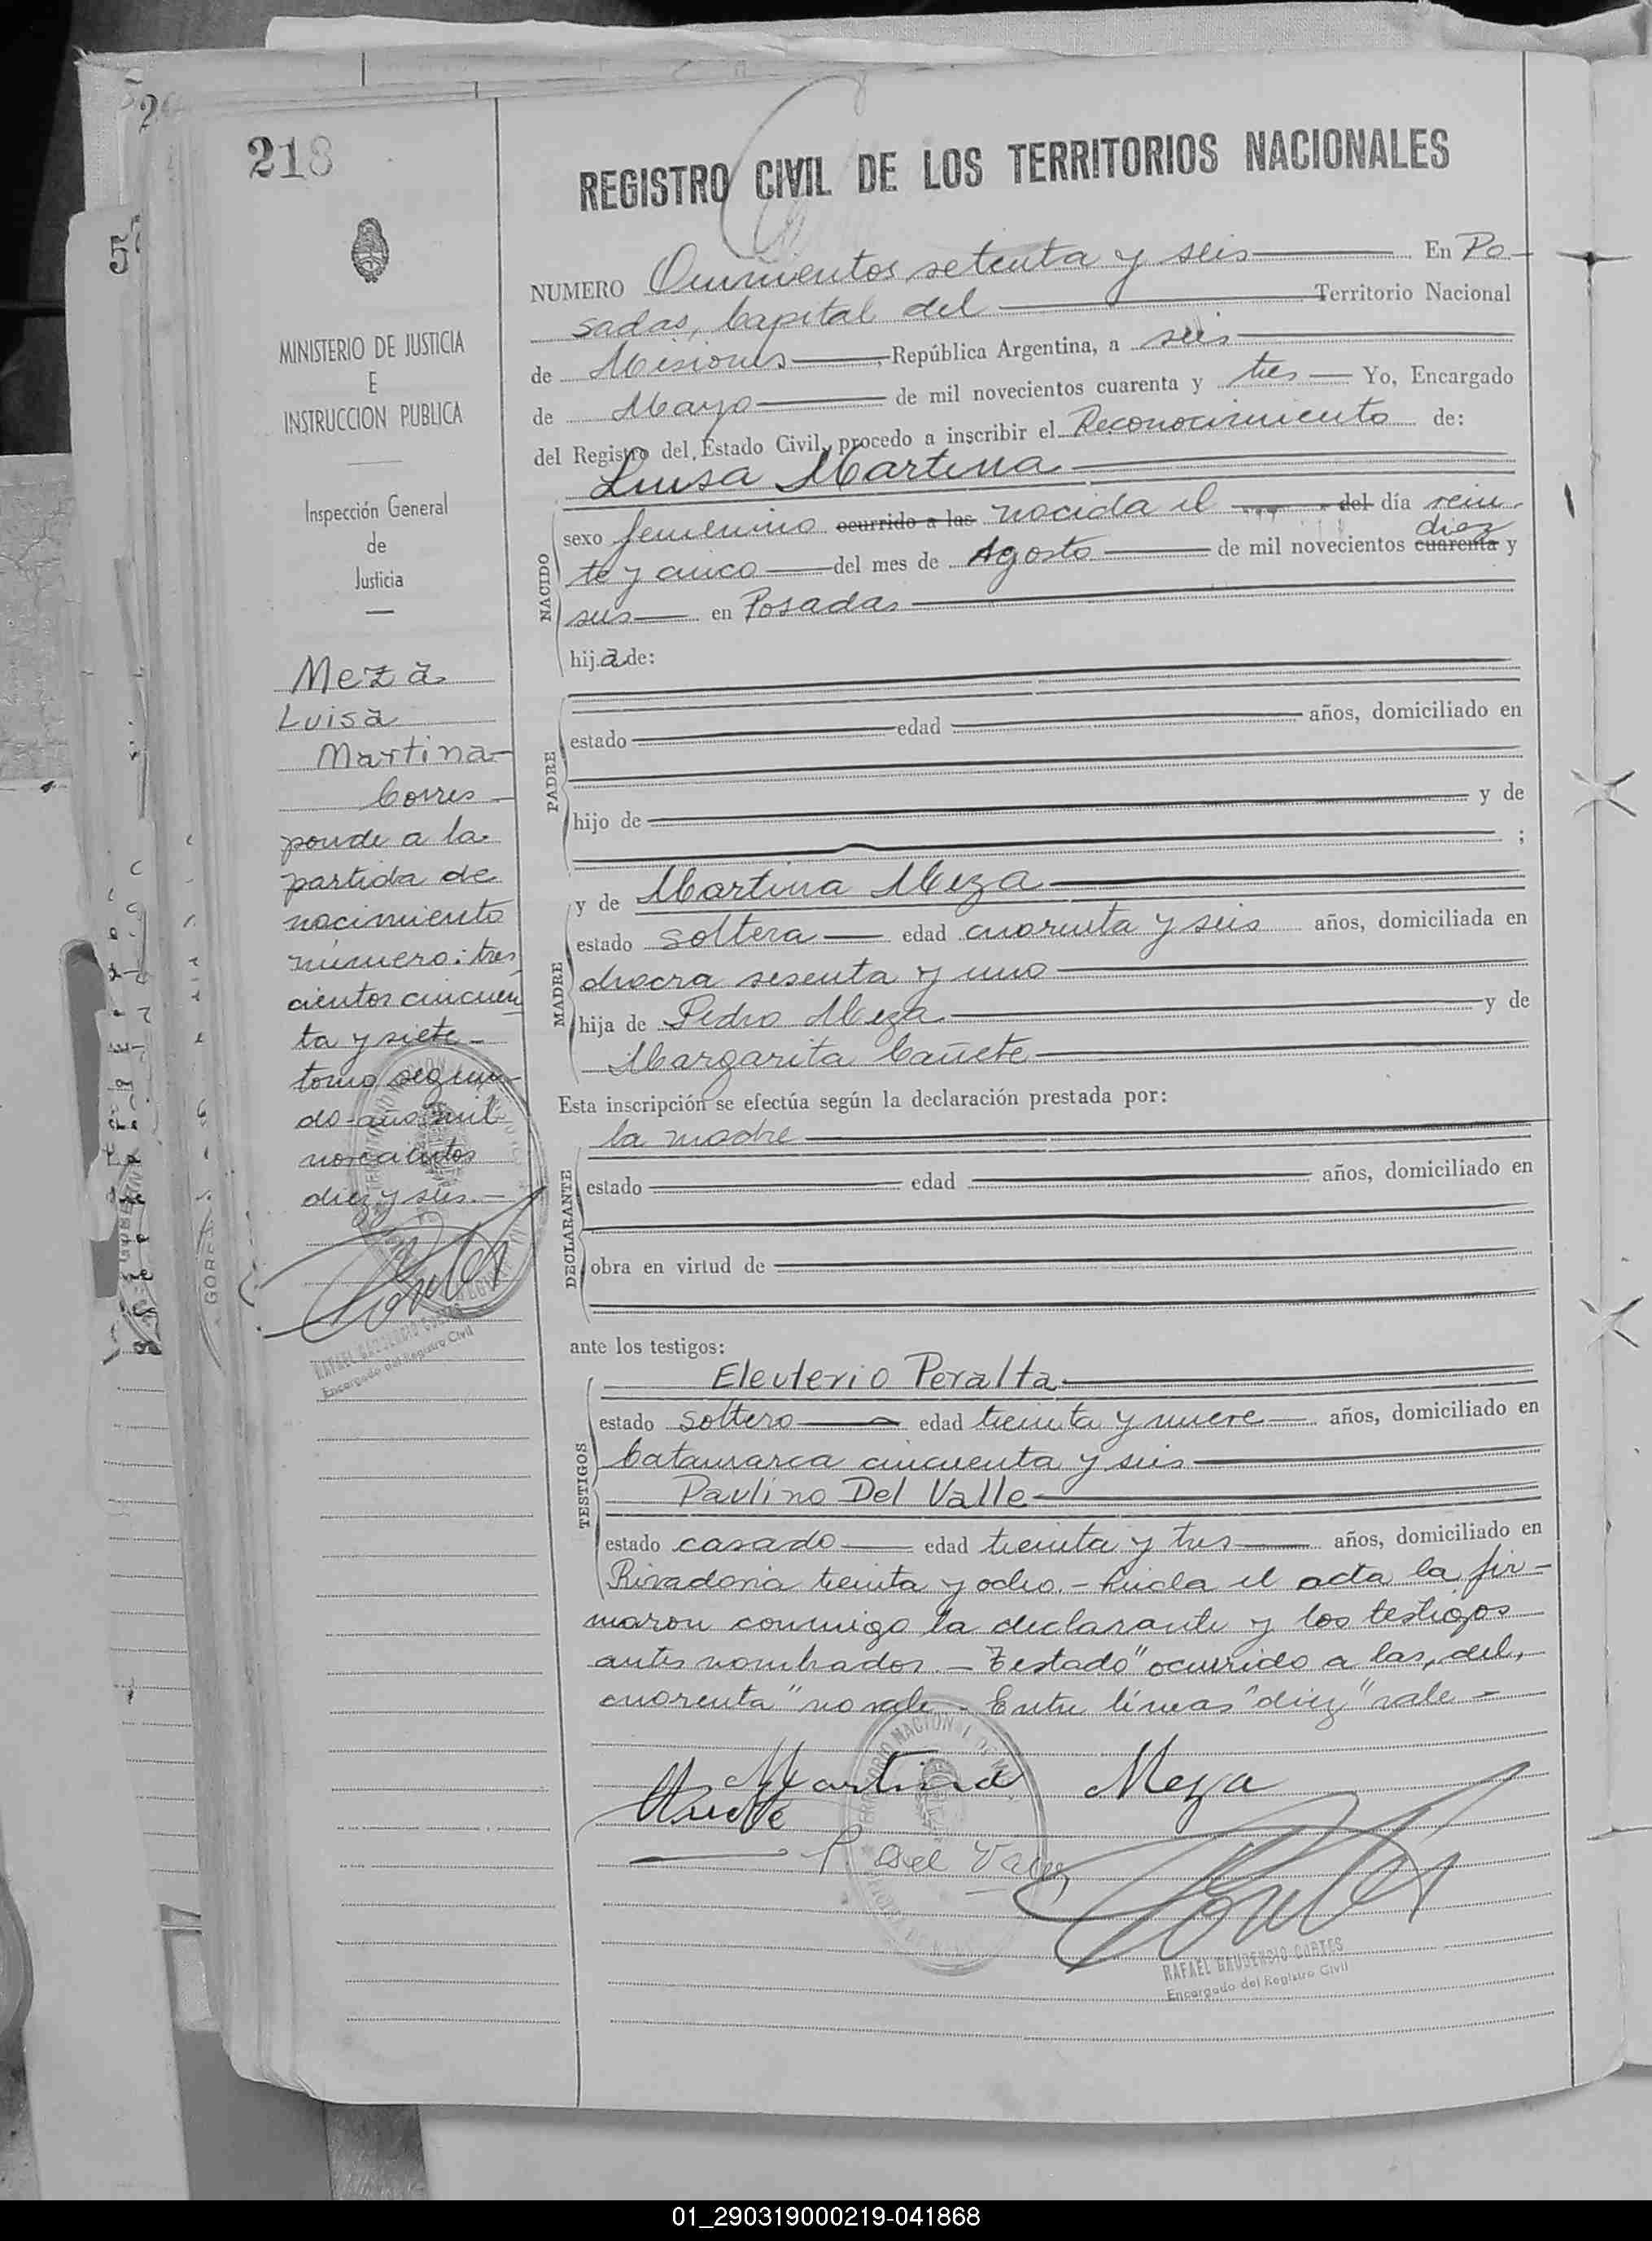 218
MINISTERIO DE JUSTICIA
E
INSTRUCCION PUBLICA
Inspección General
de
Justicia
Meza
Luisa
Martina
Corres
ponde a la
partida de
nacimiento
número: tres
cientos cincuen
ta y siete-
tomo segun-
do-año mil
novecientos
diez y seis.-
RAFAEL GAUDENCIO CORTES
Encargado del Registro Civil
REGISTRO CIVIL DE LOS TERRITORIOS NACIONALES
NUMERO Quinientos setenta y seis En Po-
sadas, Capital del Territorio Nacional
de Misiones, República Argentina, a seis
de Mayo de mil novecientos cuarenta y tres Yo, Encargado
del Registro del Estado Civil, procedo a inscribir el Reconocimiento de:
Luisa Martina
NACIDO
sexo femenino ocurrido a las nacida el del día vein-
diez
te y cinco del mes de Agosto de mil novecientos cuarenta y
seis en Posadas
hija de:
PADRE
estado edad años, domiciliado en
hijo de y de
;
y de Martina Meza
MADRE
estado soltera edad cuarenta y seis años, domiciliada en
chacra sesenta y uno
hija de Pedro Meza y de
Margarita Cañete
Esta inscripción se efectúa según la declaración prestada por:
la madre
DECLARANTE
estado edad años, domiciliado en
obra en virtud de
ante los testigos:
Eleuterio Peralta
TESTIGOS
estado soltero edad treinta y nueve años, domiciliado en
Catamarca cincuenta y seis
Paulino Del Valle
estado casado edad treinta y tres años, domiciliado en
Rivadavia treinta y ocho.- Leida el acta la fir-
maron conmigo la declarante y los testigos
antes nombrados.- Testado "ocurrido a las, del,
cuarenta" no vale - Entre líneas "diez" vale -
Martina Meza
P. Del Valle
RAFAEL GAUDENCIO CORTES
Encargado del Registro Civil
01_290319000219-041868